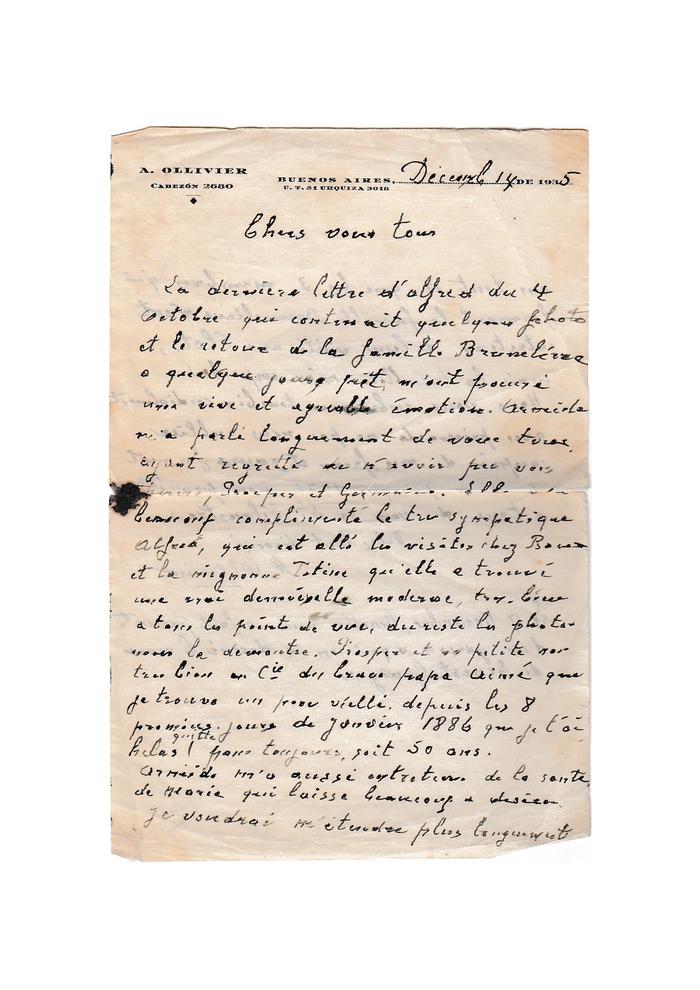 A. OLLIVIER
CABEZÓN 2680
BUENOS AIRES, Décemb 14 DE 1935
U. T. 51 URQUIZA 3018
Chers vous tous
La derniere lettre d'alfred du 4
Octobre qui contenait quelques photo
et le retour de la famille
a quelque jours prèt, m'ont
une vive et agreable émotion. Armide
m'a parlé longuement de vous tous,
ayant regretté de n'avoir pu voir
Prosper et Germaine.
beaucoup complimenté le tres sympatique
Alfred, qui est allé les visiter chez
et la mignonne Titine qu'elle a trouvé
une vrai demoiselle moderne, tres bien
a tous les points de vue, du reste les photos
nous le demontre. Prosper et sa petite son
tres bien en Cie du brave papa Aimé que
je trouve un peu viellé, depuis les 8
premiers jours de Janvier 1886 que je t'ai
quitté
helas! pour toujours, soit 50 ans.
Armide m'a aussi entretenu de la santé
de Marie qui laisse beaucoup a desirer
Je voudrai m'étendre plus longuement